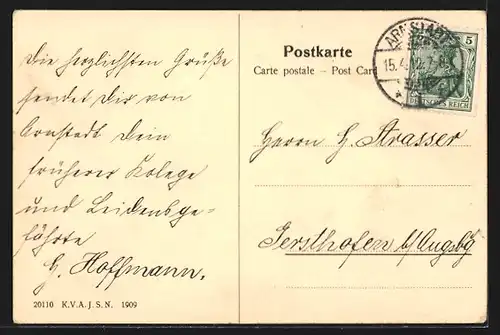 Die herzlichsten Grüße
sendet Dir von
Arnstadt Dein
früherer Kolege
und Leidensge-
fährte
H. Hoffmann.
20110 K.V.A.J.S.N. 1909
Postkarte
Carte postale – Post Card
ARNSTADT
15.4.12.7-8
5
DEUTSCHES REICH
Herrn H. Strasser
Gersthofen b/Augsbg